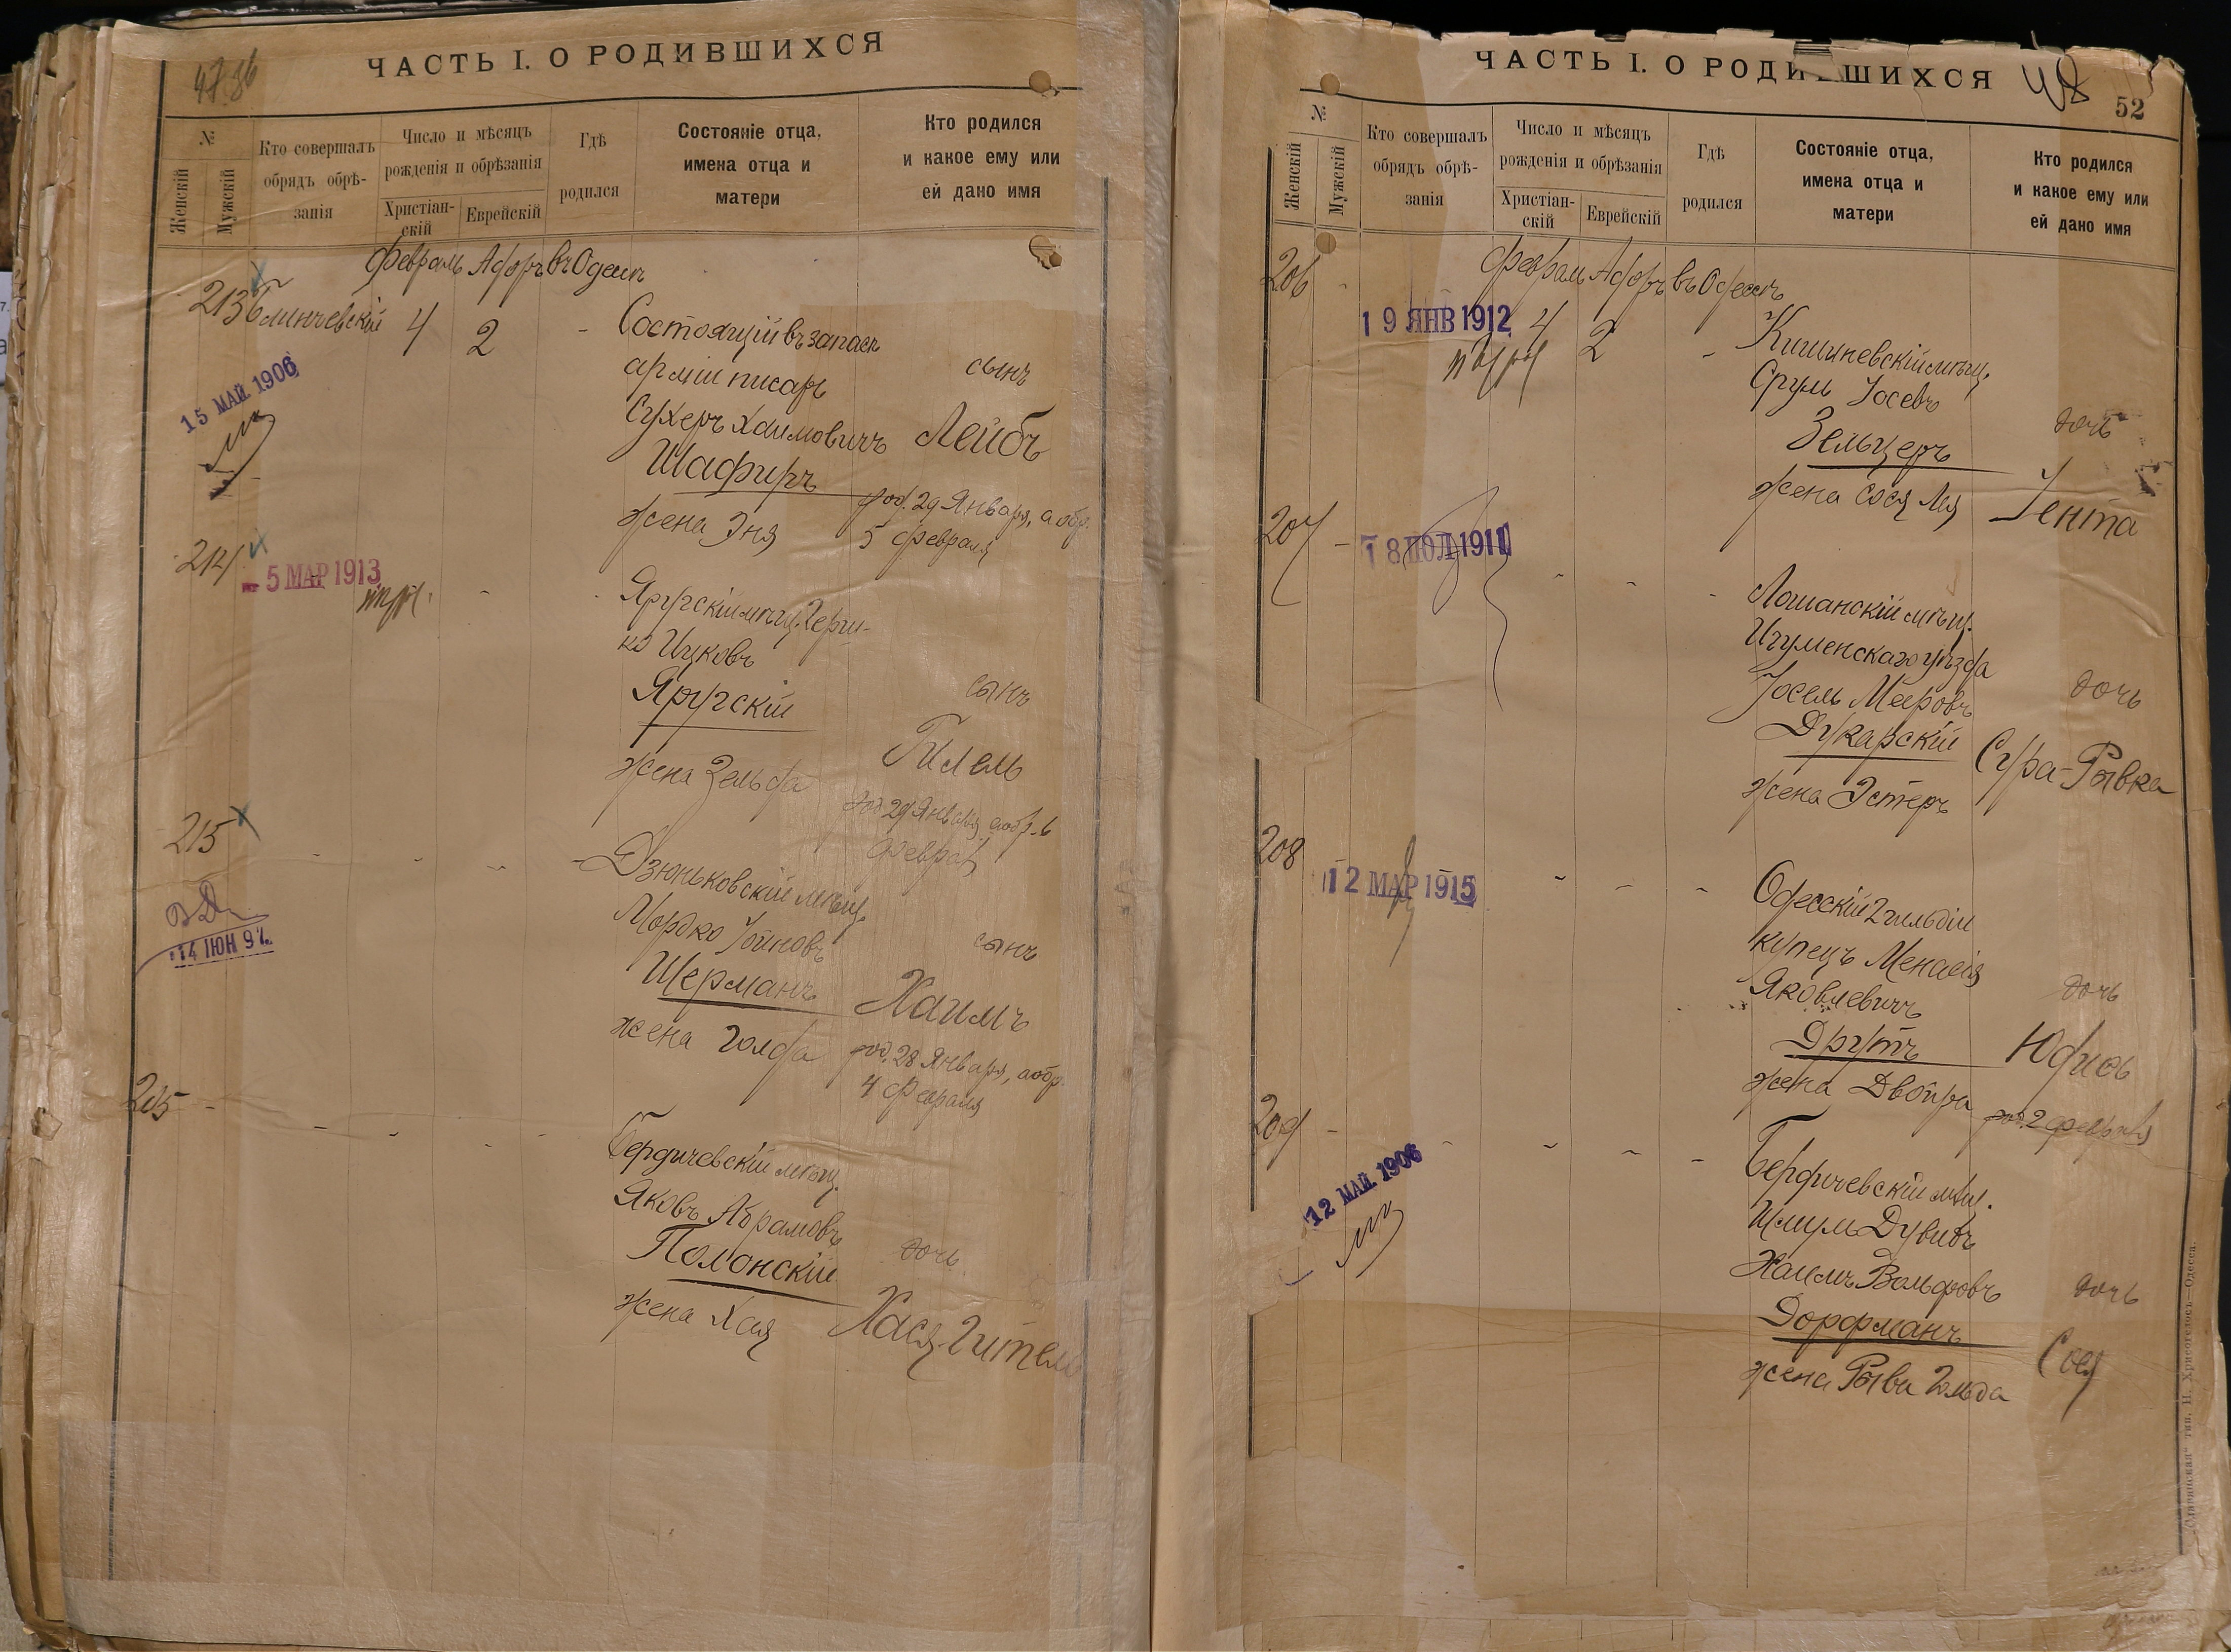 47.86
ЧАСТЬ I. О РОДИВШИХСЯ
№
Женскій
Мужскій
Кто совершалъ
обрядъ обрѣ-
занія
Число и мѣсяцъ
рожденія и обрѣзанія
Христіан-
скій
Еврейскій
Гдѣ
родился
Состояніе отца,
имена отца и
матери
Кто родился
и какое ему или
ей дано имя
Февраль Адаръ въ Одессѣ
213 Глинчевскій 4 2 -
15 МАЙ 1906
Состоящій въ запасѣ
арміи писарь
Сухеръ Хаимовичъ
Шафиръ
жена Эня
сынъ
Лейбъ
род. 29 Января, а обр.
5 февраля
214
- 5 МАР 1913
Яругскій мѣщ. Герш-
ко Ицковъ
Яругскій
жена Зельда
сынъ
Гилель
род 29 Января, а обр. 6
феврал
215
14 ІЮН 97
Дзюньковскій мѣщ.
Мордко Іойновъ
Шерманъ
жена Голда
сынъ
Хаимъ
род. 28 Января, а обр.
4 Февраля
205 -
Бердичевскій мѣщ.
Яковъ Абрамовъ
Полонскій
жена Хая
дочь
Хася-Гитель
ЧАСТЬ I. О РОДИВШИХСЯ
48
52
№
Женскій
Мужскій
Кто совершалъ
обрядъ обрѣ-
занія
Число и мѣсяцъ
рожденія и обрѣзанія
Христіан-
скій
Еврейскій
Гдѣ
родился
Состояніе отца,
имена отца и
матери
Кто родился
и какое ему или
ей дано имя
Февраль Адаръ въ Одессѣ
206
19 ЯНВ 1912 4 2 -
Кишиневскій мѣщ.
Сруль Іосевъ
Зельцеръ
жена Сося Лея
дочь
Іента
207 -
18 ІЮЛ 1911
Лошанскій мѣщ.
Игуменскаго уѣзда
Іосель Мееровъ
Дукарскій
жена Эстеръ
дочь
Сура-Рывка
208
12 МАР 1915
Одесскій 2 гильдіи
купецъ Менасія
Яковлевичъ
Друтъ
жена Двойра
дочь
Юдись
род. 2 февраля
209 -
12 МАЙ 1906
Бердичевскій мѣщ.
Шлумъ Дувидъ
Хаимъ Вольфовъ
Дорфманъ
жена Рыва Гольда
дочь
Сося
"Славянская" тип. Н. Хрисогелосъ.—Одесса.